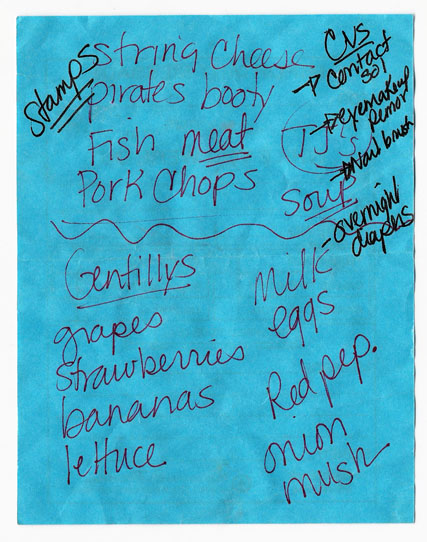 Stamps
String Cheese
pirates booty
Fish meat
Pork Chops
TJ's
Soup
CVS
contact
sol
eyemakeup
remov
nail brush
overnight
diapers
Gentillys
grapes
strawberries
bananas
lettuce
Milk
eggs
Red pep.
onion
mush